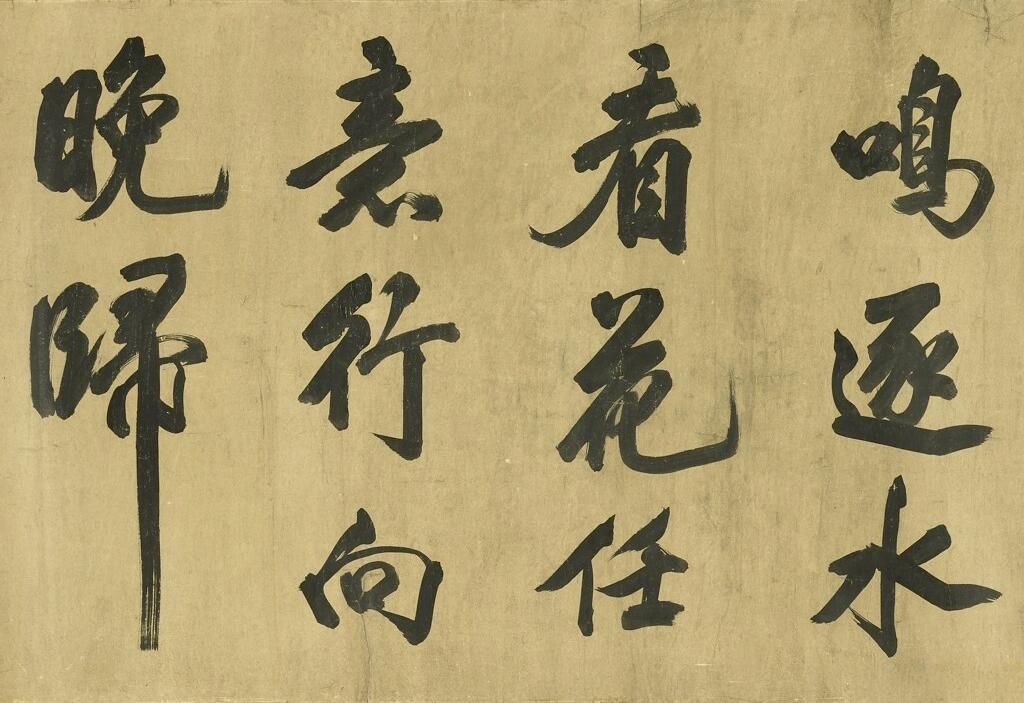 鳴逐水
看花任
意行向
晚歸